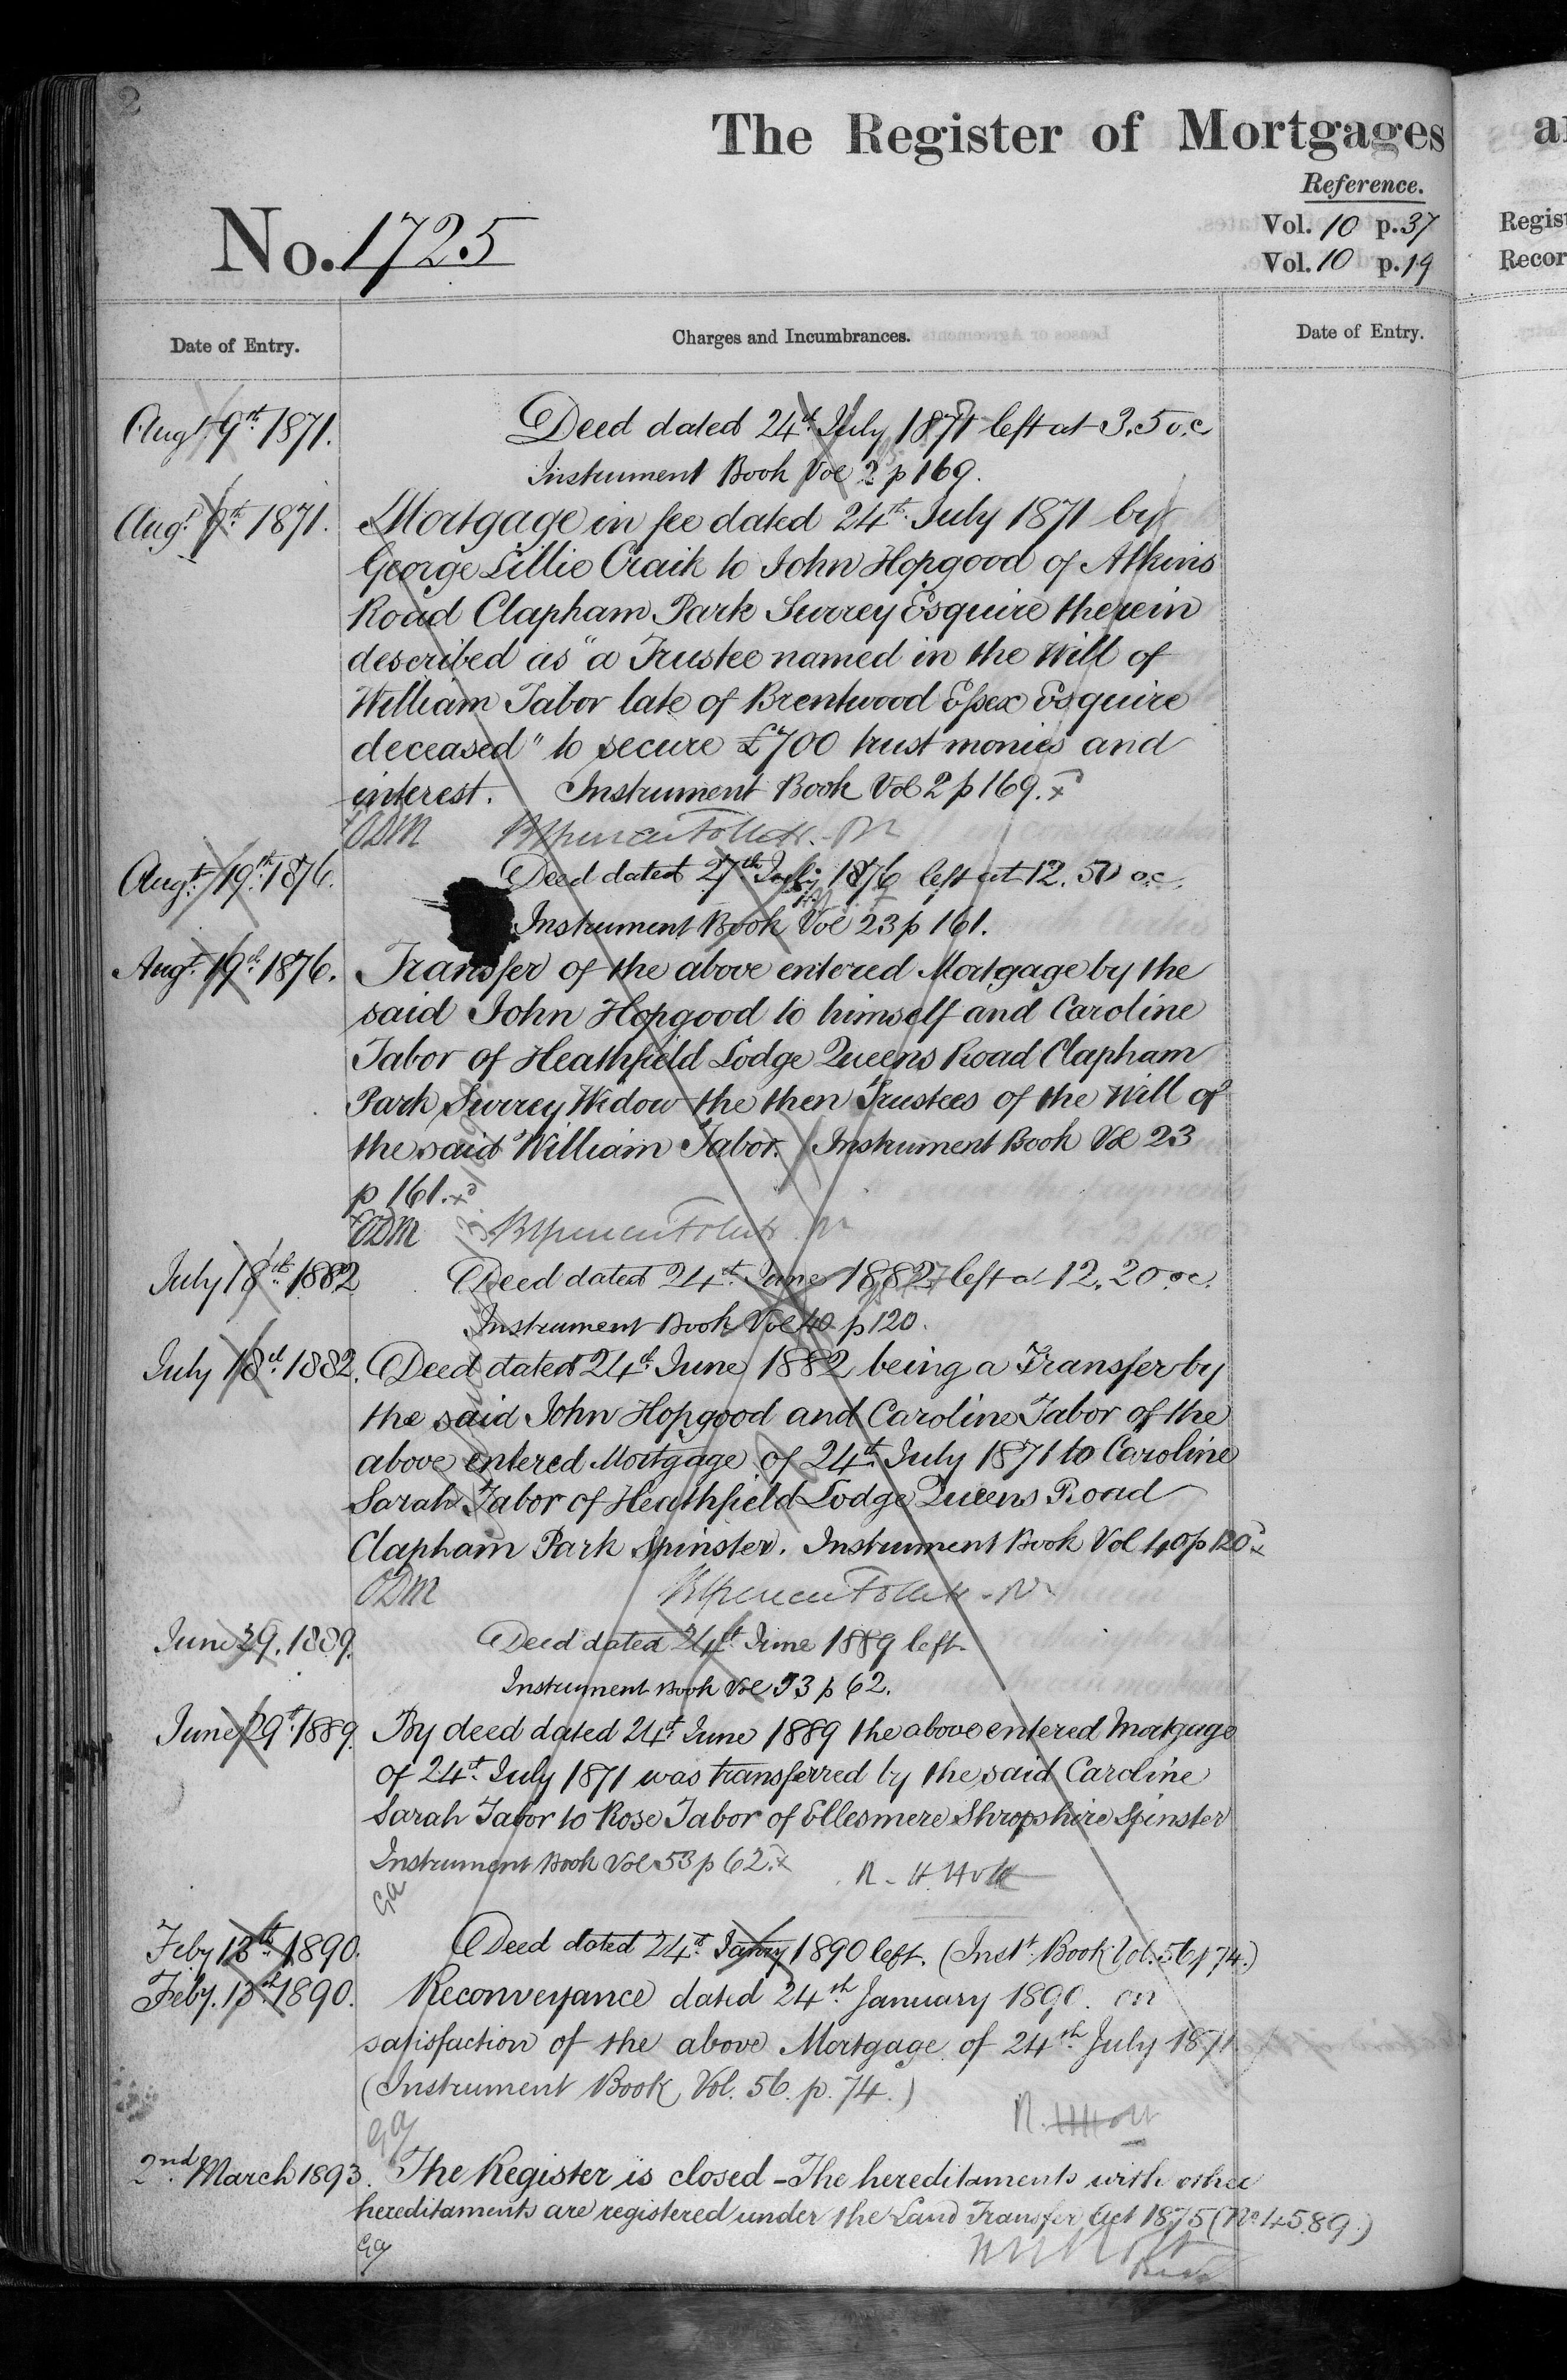 2
The Register of Mortgages
Reference.
No. 1725
Vol. 10 p. 37
Vol. 10 p. 19
Regist
Recor
Date of Entry.
Charges and Incumbrances.
Date of Entry.
Augt. 9th 1871.
Deed dated 24th July 1871 left at 3.5 o.c
Instrument Book Vol 2 p 169.
Augt. 9th 1871.
Mortgage in fee dated 24th July 1871 by
George Lillie Craik to John Hopgood of Atkins
Road Clapham Park Surrey Esquire therein
described as "a Trustee named in the Will of
William Tabor late of Brentwood Essex Esquire
deceased" to secure £700 trust monies and
interest. Instrument Book Vol 2 p 169.
ODM
Augt. 19th 1876.
Deed dated 27th July 1876 left at 12.50 o.c.
Instrument Book Vol 23 p 161.
Augt. 19th 1876.
Transfer of the above entered Mortgage by the
said John Hopgood to himself and Caroline
Tabor of Heathfield Lodge Queens Road Clapham
Park Surrey Widow the then Trustees of the Will of
the said William Tabor. Instrument Book Vol 23
p 161.
ODM
July 18th 1882
Deed dated 24th June 1882 left at 12.20 o.c.
Instrument Book Vol 40 p 120.
July 18th 1882.
Deed dated 24th June 1882 being a Transfer by
the said John Hopgood and Caroline Tabor of the
above entered Mortgage of 24th July 1871 to Caroline
Sarah Tabor of Heathfield Lodge Queens Road
Clapham Park Spinster. Instrument Book Vol 40 p 120
ODM
June 29. 1889.
Deed dated 24th June 1889 left
Instrument Book Vol 53 p 62.
June 29th 1889.
By deed dated 24th June 1889 the above entered Mortgage
of 24th July 1871 was transferred by the said Caroline
Sarah Tabor to Rose Tabor of Ellesmere Shropshire Spinster
Instrument Book Vol 53 p 62.
R. H. Holt
Feby 13th 1890.
Deed dated 24th Jany 1890 left. (Inst. Book Vol. 56 p 74.)
Feby. 13th 1890.
Reconveyance dated 24th January 1890. on
satisfaction of the above Mortgage of 24th July 1871
(Instrument Book Vol. 56. p. 74.)
R. H Holt
2nd March 1893.
The Register is closed - The hereditaments with other
hereditaments are registered under the Land Transfer Act 1875 (No. 4589.)